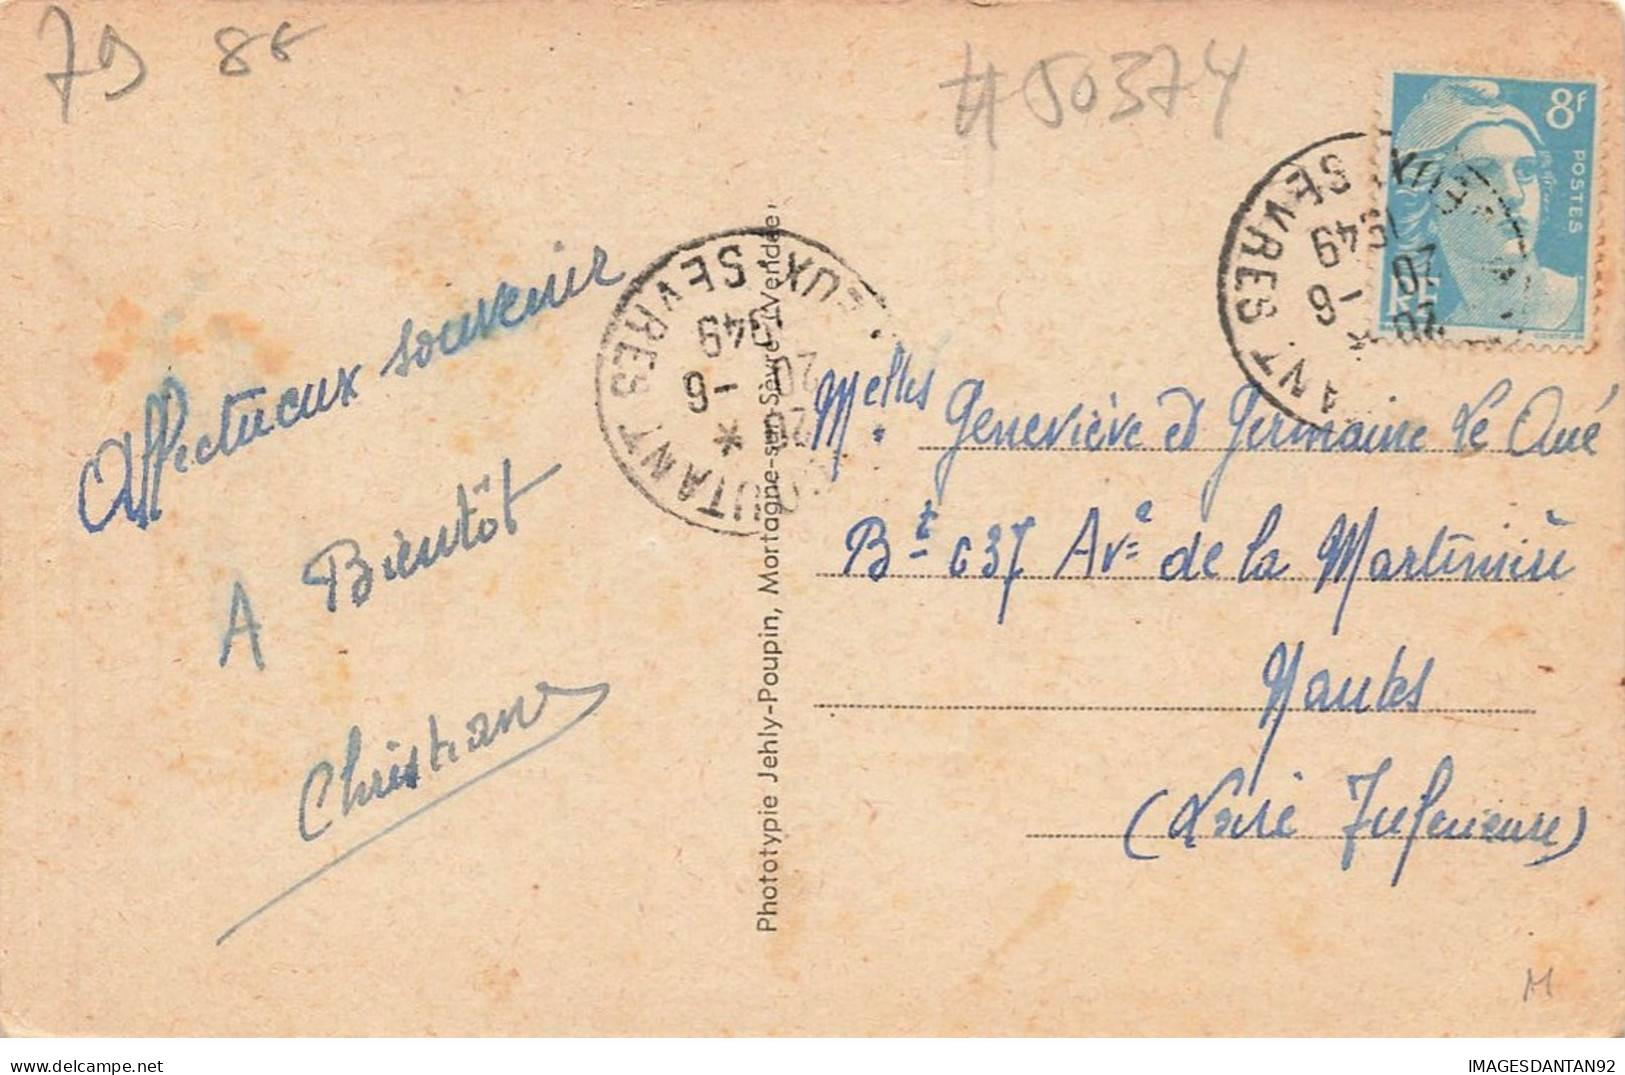 79 86
#50374
8F
POSTES
DEUX SEVRES
* 20 -6 49
Affectueux souvenir
A Bientôt
Christiane
Phototypie Jehly-Poupin, Mortagne-sur-Sèvre (Vendée)
Melles Geneviève et Germaine Le Oué
Bt 637 Ave de la Martinière
Nantes
(Loire Inférieure)
M
IMAGESDANTAN92